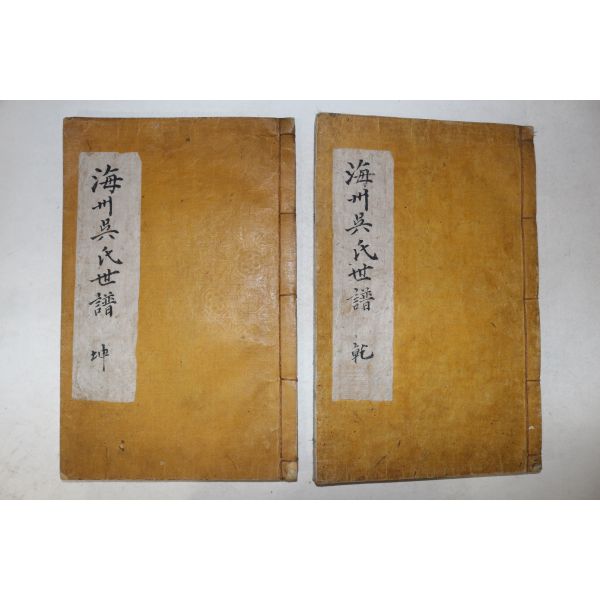 海州吳氏世譜 乾
海州吳氏世譜 坤